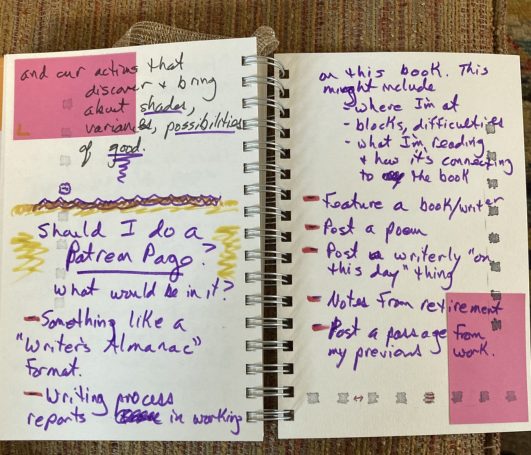 and our actions that
discover + bring
about shades,
variances, possibilities
of good.
Should I do a
Patreon Page?
What would be in it?
- Something like a
"Writer's Almanac"
format.
- Writing process
reports in working
on this book. This
might include
- where I'm at
- blocks, difficulties
- what I'm reading
+ how it's connecting
to the book
- Feature a book/writer
- Post a poem
- Post writerly "on
this day" thing
- Notes from retirement
- Post a passage from
my previous work.